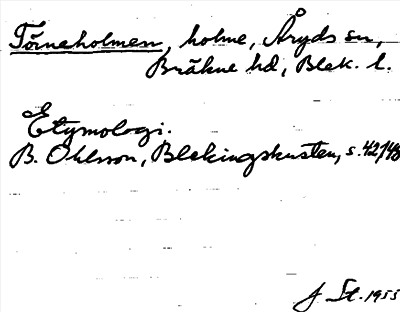 Törneholmen, holme, Åryds sn,
Bräkne hd, Blek. l.
Etymologi.
B. Ohlsson, Blekingskusten, s. 42, 48
J St. 1955